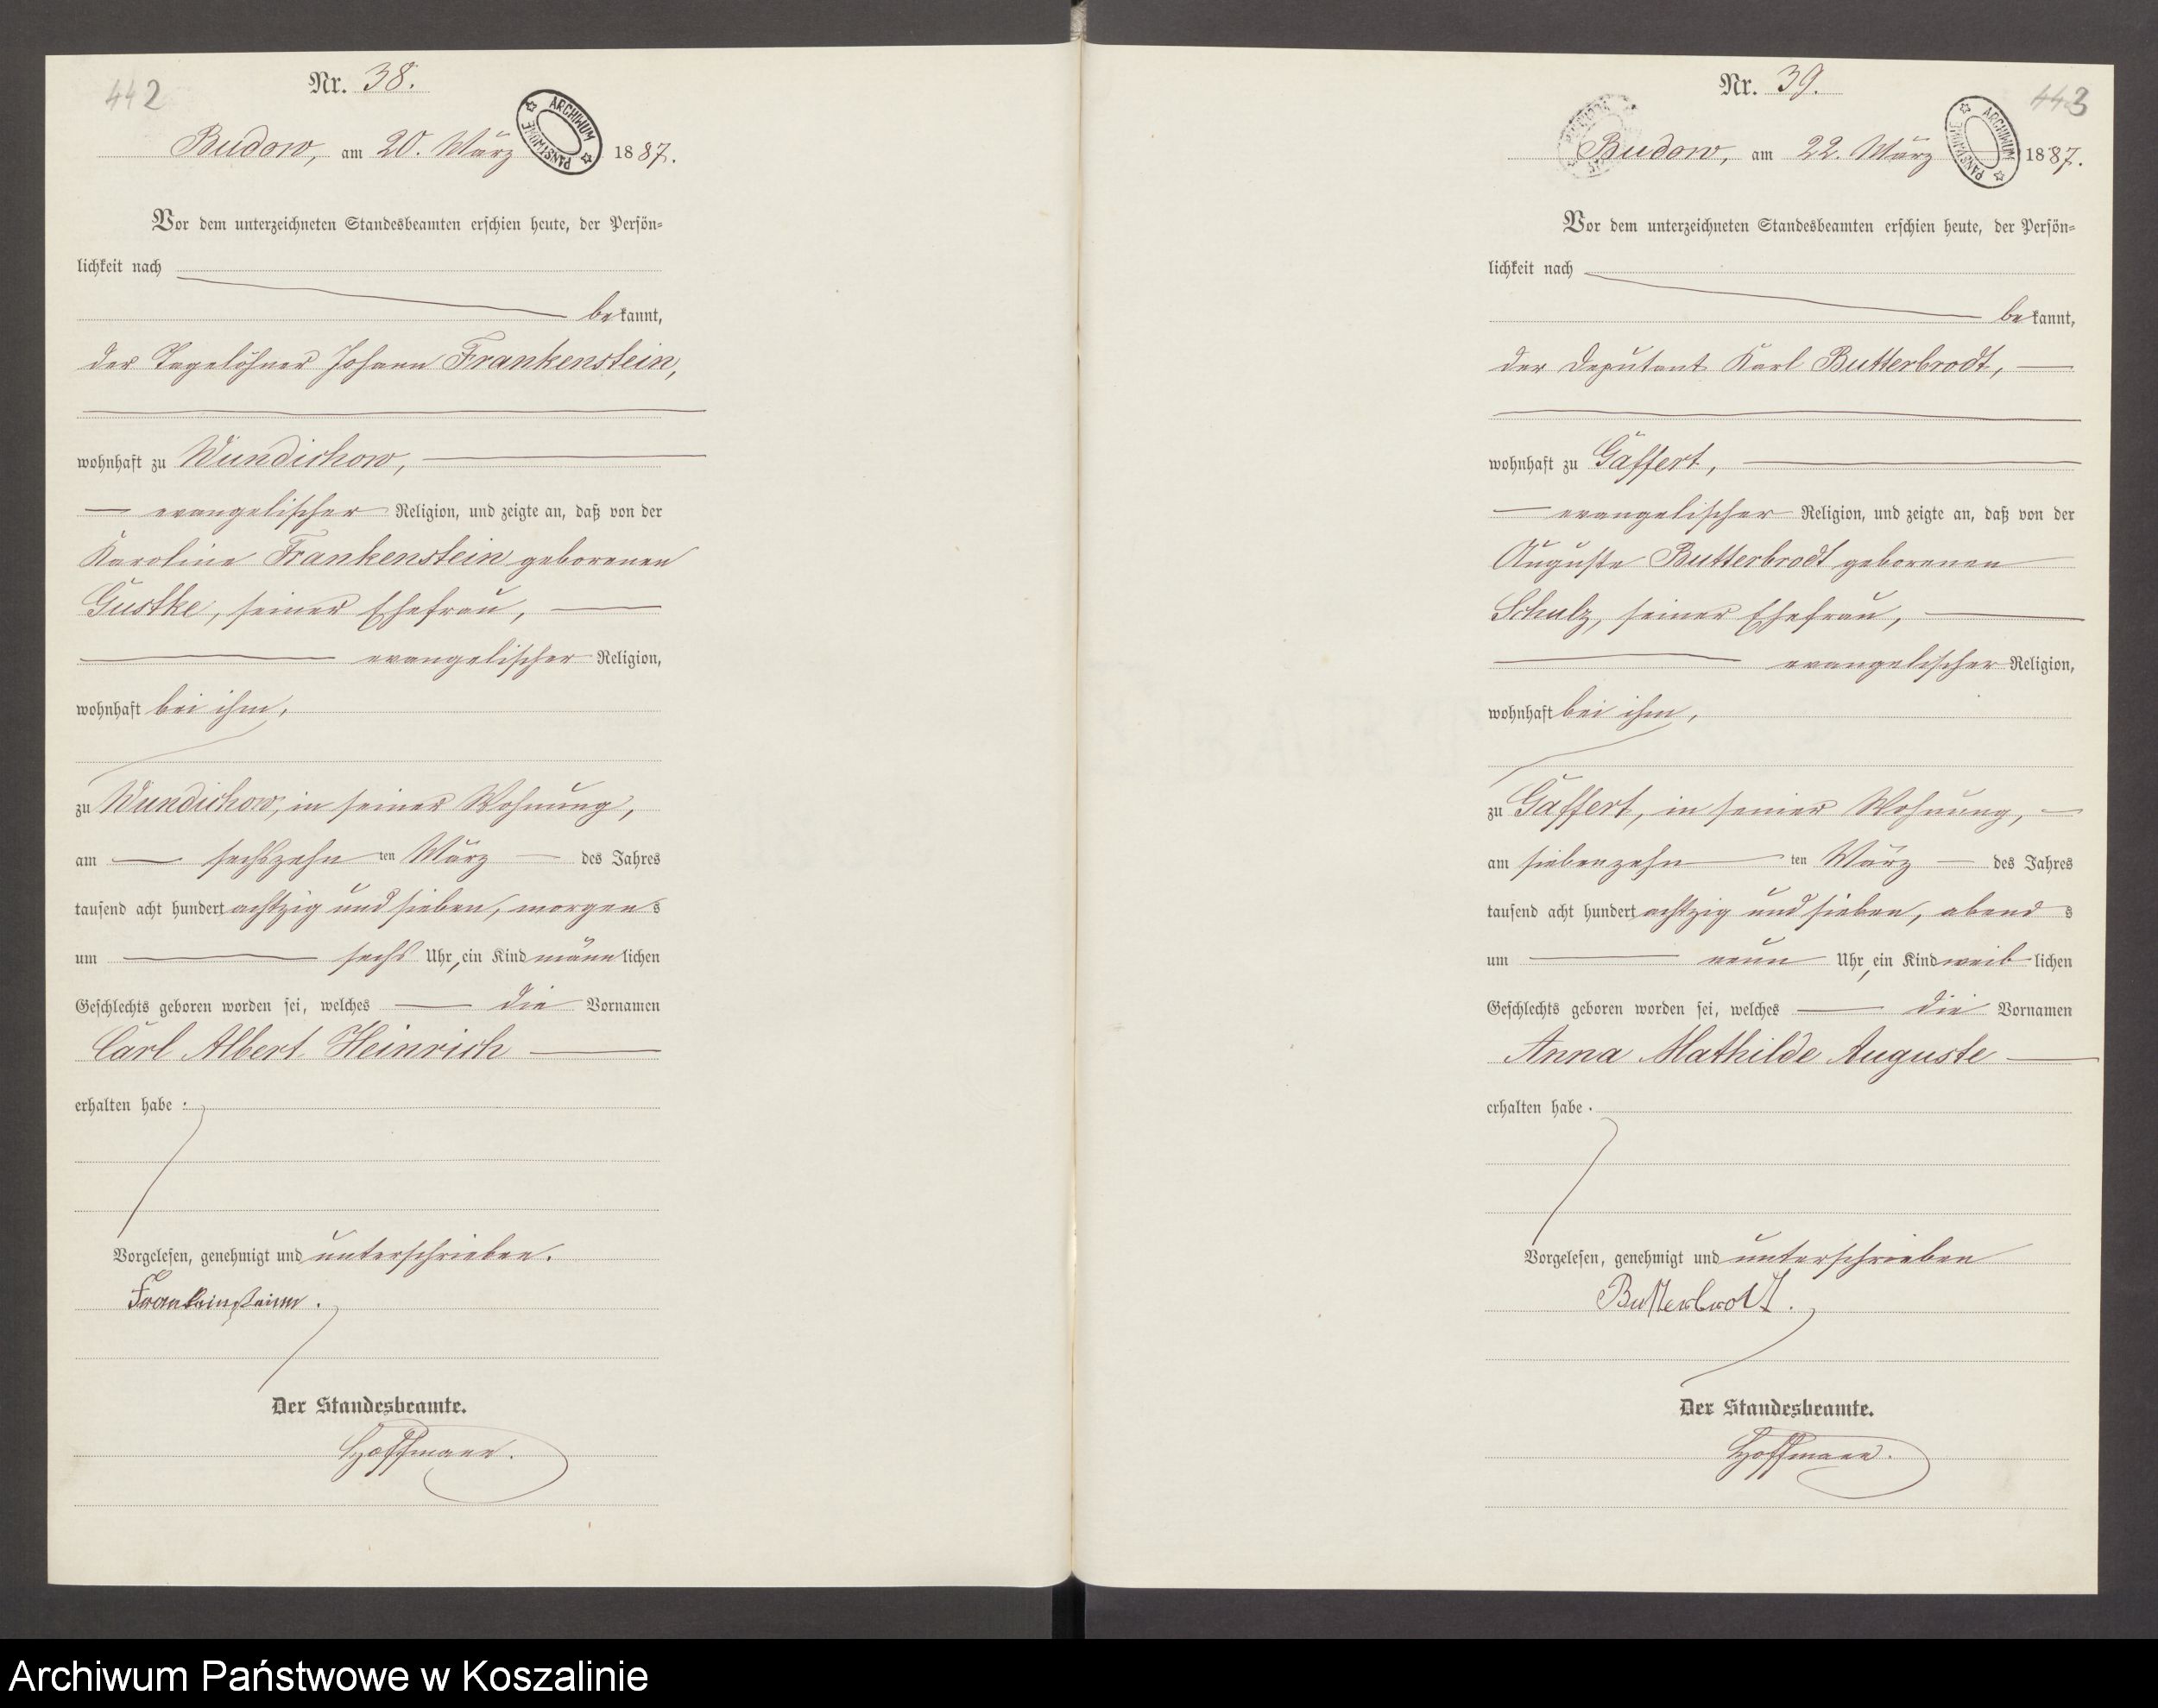 442
Nr. 38.
Budow, am 20. März 1887.
ARCHIWUM PAŃSTWOWE
Vor dem unterzeichneten Standesbeamten erschien heute, der Persön=
lichkeit nach
bekannt,
der Tagelöhner Johann Frankenstein,
wohnhaft zu Wundichow,
evangelischer Religion, und zeigte an, daß von der
Karoline Frankenstein geborenen
Gustke, seiner Ehefrau,
evangelischer Religion,
wohnhaft bei ihm,
zu Wundichow, in seiner Wohnung,
am sechszehn ten März des Jahres
tausend acht hundert achtzig und sieben, morgens
um sechs Uhr, ein Kind männlichen
Geschlechts geboren worden sei, welches die Vornamen
Carl Albert Heinrich
erhalten habe.
Vorgelesen, genehmigt und unterschrieben.
Der Standesbeamte.
Hoffmann.
443
Nr. 39.
Budow, am 22. März 1887.
ARCHIWUM PAŃSTWOWE
Vor dem unterzeichneten Standesbeamten erschien heute, der Persön=
lichkeit nach
bekannt,
der Deputant Karl Butterbrodt,
wohnhaft zu Gaffert,
evangelischer Religion, und zeigte an, daß von der
Auguste Butterbrodt geborenen
Schulz, seiner Ehefrau,
evangelischer Religion,
wohnhaft bei ihm,
zu Gaffert, in seiner Wohnung,
am siebenzehn ten März des Jahres
tausend acht hundert achtzig und sieben, abends
um neun Uhr, ein Kind weiblichen
Geschlechts geboren worden sei, welches die Vornamen
Anna Mathilde Auguste
erhalten habe.
Vorgelesen, genehmigt und unterschrieben
Butterbrodt.
Der Standesbeamte.
Hoffmann.
Archiwum Państwowe w Koszalinie